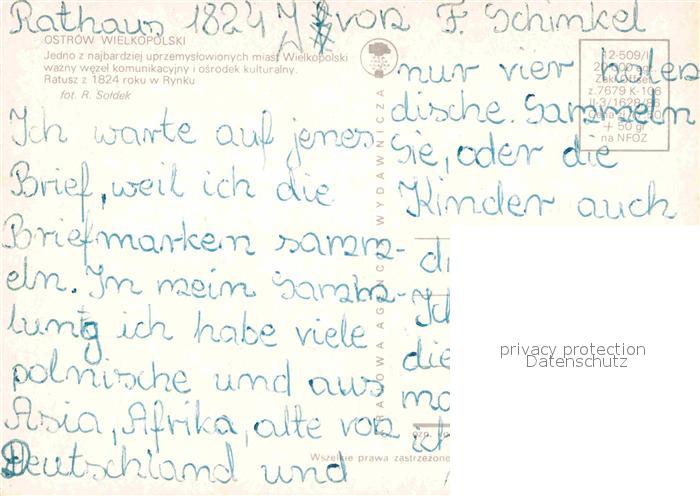 Rathaus 1824 von F. Schinkel
OSTRÓW WIELKOPOLSKI
Jedno z najbardziej uprzemysłowionych miast Wielkopolski
ważny węzeł komunikacyjny i ośrodek kulturalny.
Ratusz z 1824 roku w Rynku
fot. R. Sołdek
Ich warte auf jenes
Brief, weil ich die
Briefmarken samm-
eln. In mein Samm-
lung ich habe viele
polnische und aus
Asia, Afrika, alte von
Deutschland und
KRAJOWA AGENCJA WYDAWNICZA
12-509/I
Zakł. Offset.
z.7679 K-106
II-3/1628/86
+ 50 gr
na NFOZ
nur vier holen
dische. Sammeln
Sie, oder die
Kinder auch
di
Ich
die
mo
ich
Wszelkie prawa zastrzeżone
privacy protection
Datenschutz